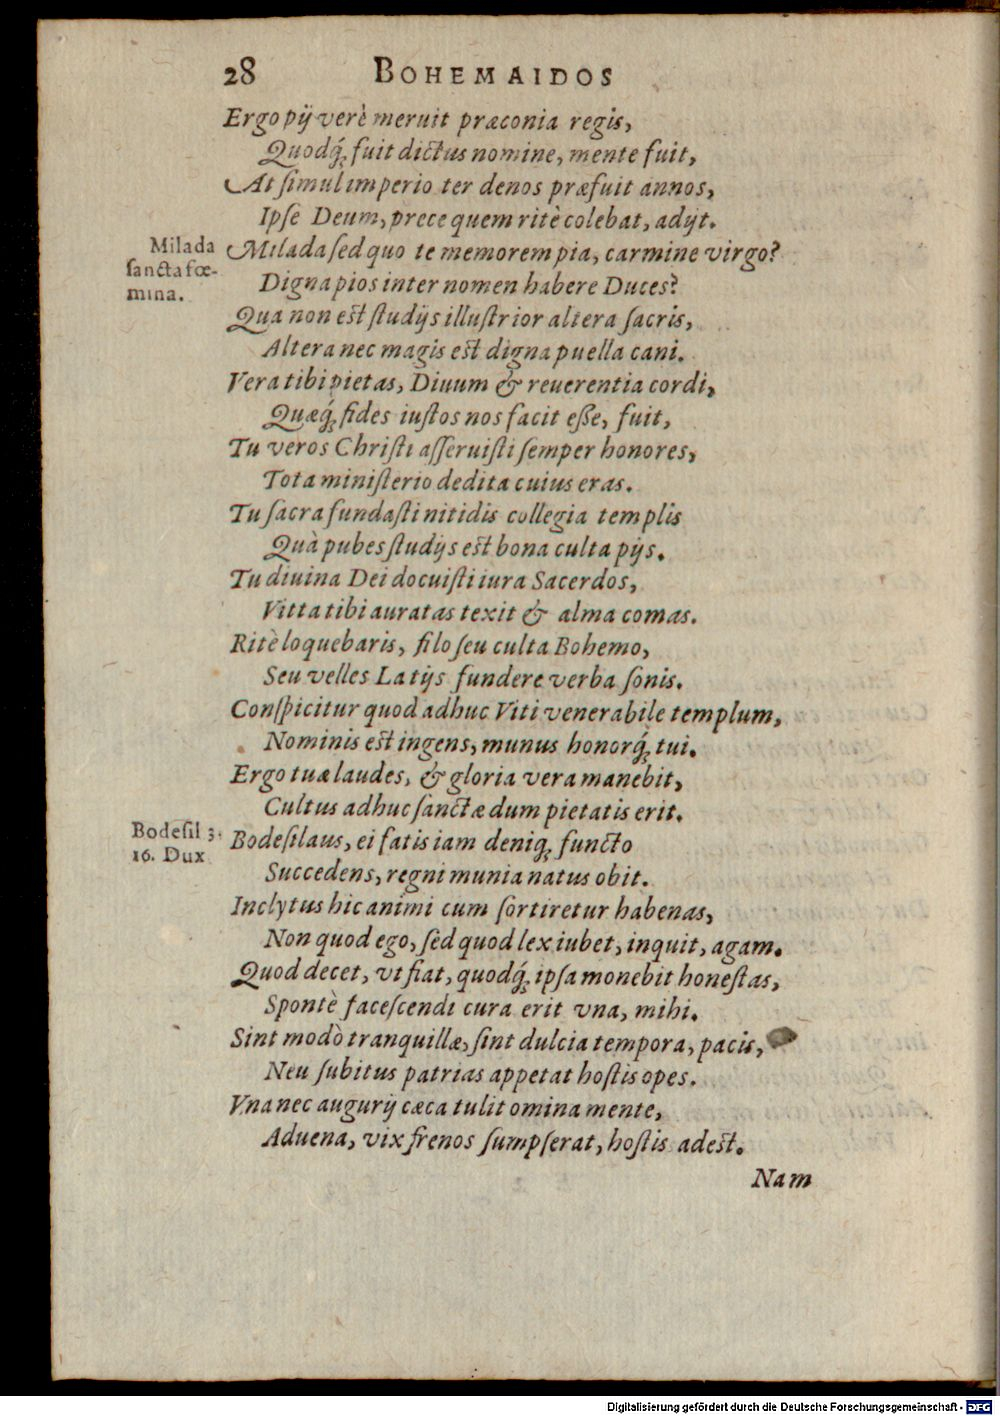 28 BOHEMAIDOS
Ergo pij verè meruit præconia regis,
Quodq́; fuit dictus nomine, mente fuit,
At ſimul imperio ter denos præfuit annos,
Ipſe Deum, prece quem ritè colebat, adijt.
Milada
ſancta fœ-
mina.
Milada ſed quo te memorem pia, carmine virgo?
Digna pios inter nomen habere Duces?
Qua non eſt ſtudijs illuſtrior altera ſacris,
Altera nec magis eſt digna puella cani.
Vera tibi pietas, Diuum & reuerentia cordi,
Quæq́; fides iuſtos nos facit eſſe, fuit,
Tu veros Chriſti aſſeruiſti ſemper honores,
Tota miniſterio dedita cuius eras.
Tu ſacra fundaſti nitidis collegia templis
Quà pubes ſtudijs eſt bona culta pijs.
Tu diuina Dei docuiſti iura Sacerdos,
Vitta tibi auratas texit & alma comas.
Ritè loquebaris, filo ſeu culta Bohemo,
Seu velles Latijs fundere verba ſonis.
Conſpicitur quod adhuc Viti venerabile templum,
Nominis eſt ingens, munus honorq́; tui.
Ergo tuæ laudes, & gloria vera manebit,
Cultus adhuc ſanctæ dum pietatis erit.
Bodeſil 3.
16. Dux
Bodeſilaus, ei fatis iam deniq; functo
Succedens, regni munia natus obit.
Inclytus hic animi cum ſortiretur habenas,
Non quod ego, ſed quod lex iubet, inquit, agam.
Quod decet, vt fiat, quodq́; ipſa monebit honeſtas,
Spontè faceſcendi cura erit vna, mihi.
Sint modò tranquillæ, ſint dulcia tempora, pacis,
Neu ſubitus patrias appetat hoſtis opes.
Vna nec augurij cæca tulit omina mente,
Aduena, vix frenos ſumpſerat, hoſtis adeſt.
Nam
Digitalisierung gefördert durch die Deutsche Forschungsgemeinschaft - DFG